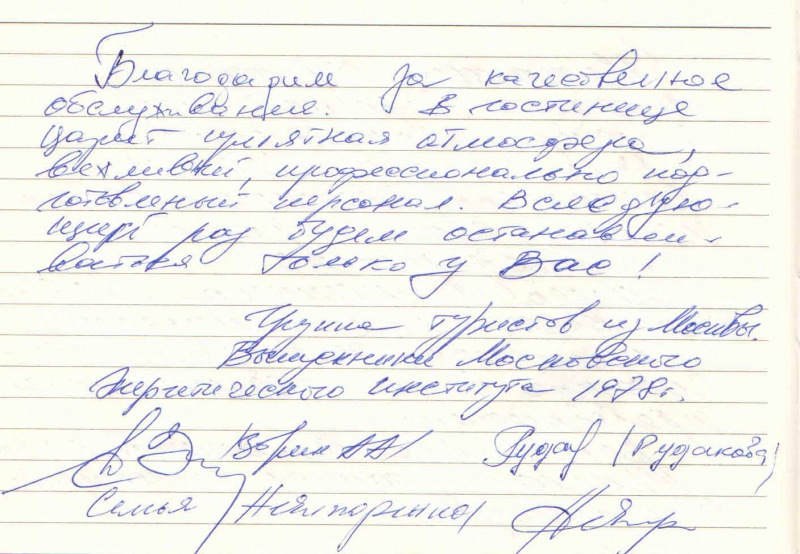 Благодарим за качественное
обслуживание. В гостинице
царит приятная атмосфера,
вежливый, профессионально под-
готовленый персонал. В следую-
щий раз будем останавли-
ваться только у Вас!
Группа туристов из Москвы.
Выпускники Московского
энергетического института 1978 г.
Рудак (Рудакова)
Семья